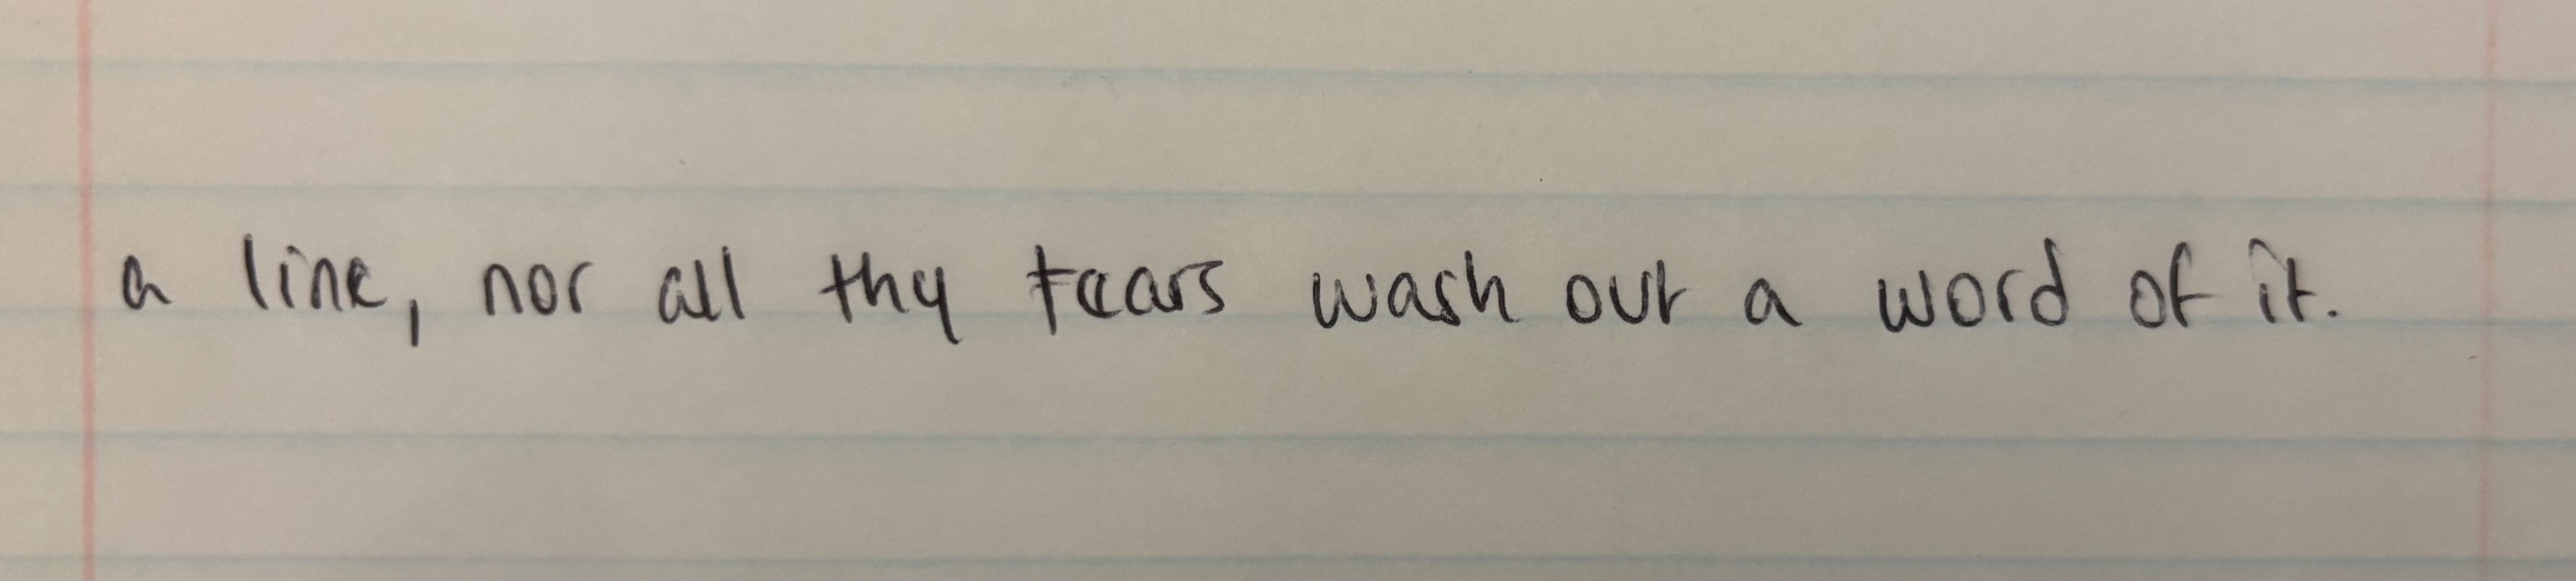 a line, nor all thy tears wash out a word of it.